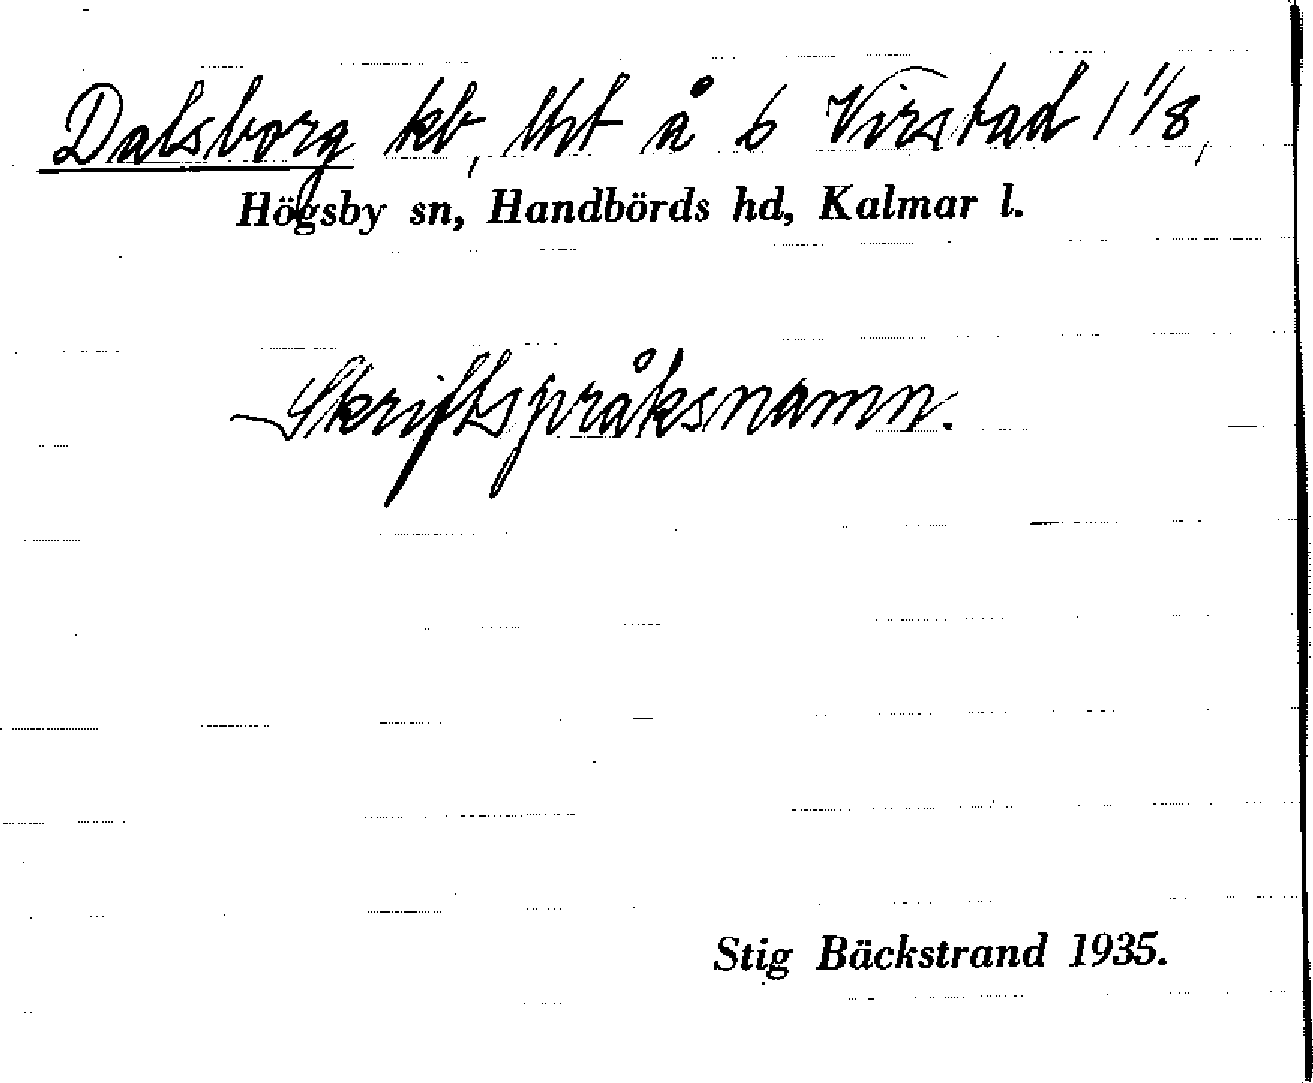 Dalsborg kb, tht å 6 Virstad 1 1/8,
Högsby sn, Handbörds hd, Kalmar l.
Skriftspråksnamn.
Stig Bäckstrand 1935.